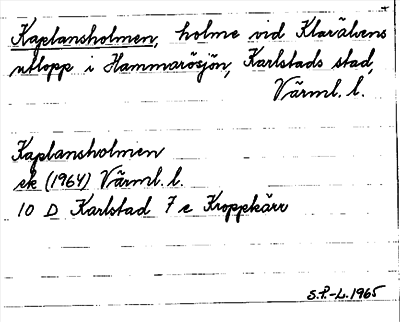 Kaplansholmen, holme vid Klarälvens
utlopp i Hammarösjön, Karlstads stad,
Värml. l.
Kaplansholmen
ek (1964) Värml. l.
10 D Karlstad 7 e Kroppkärr
S.P.-L. 1965